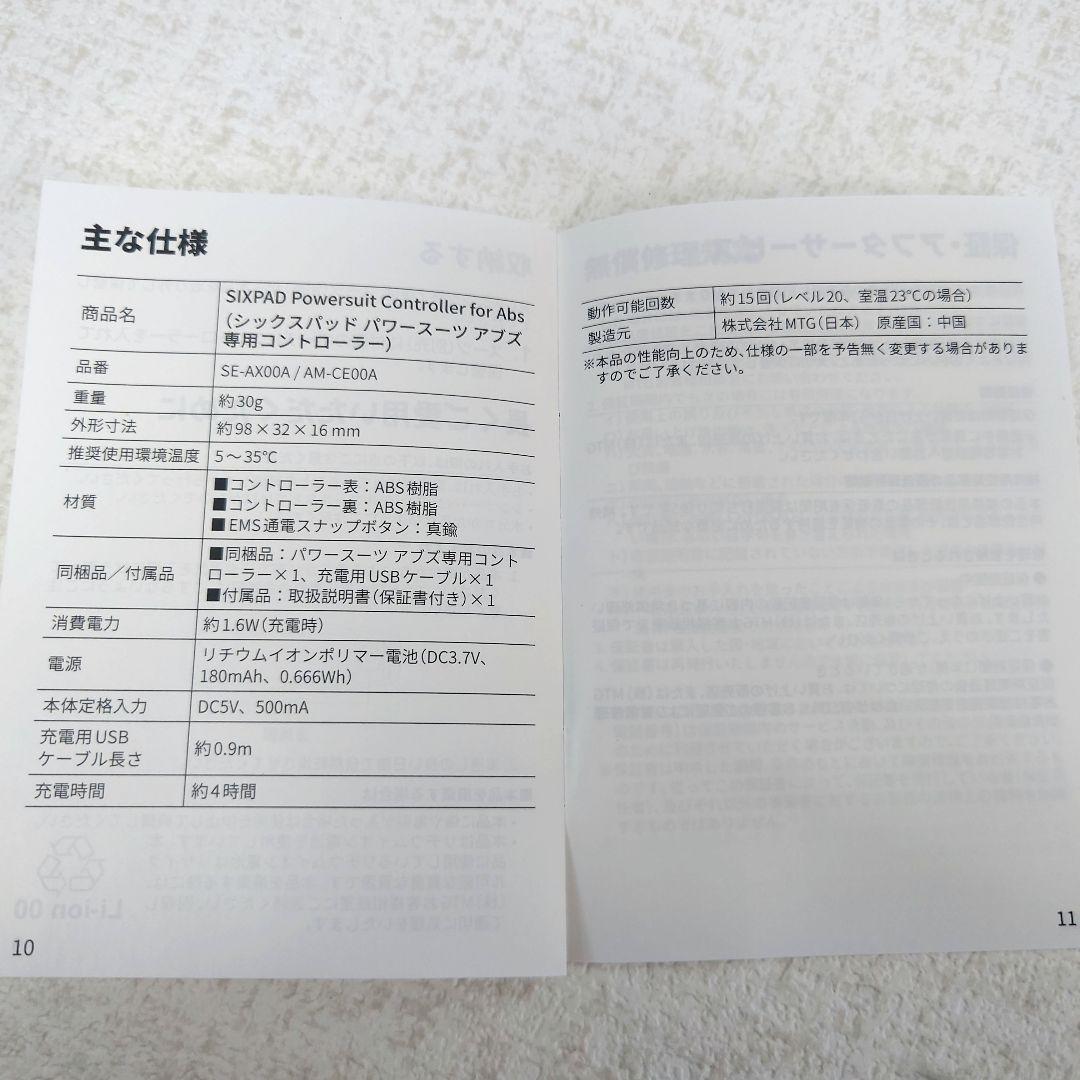 主な仕様
商品名
SIXPAD Powersuit Controller for Abs
（シックスパッド パワースーツ アブズ
専用コントローラー）
品番
SE-AX00A / AM-CE00A
重量
約30g
外形寸法
約98×32×16 mm
推奨使用環境温度
5～35℃
材質
■コントローラー表：ABS樹脂
■コントローラー裏：ABS樹脂
■EMS通電スナップボタン：真鍮
同梱品／付属品
■同梱品：パワースーツ アブズ専用コント
ローラー×1、充電用USBケーブル×1
■付属品：取扱説明書（保証書付き）×1
消費電力
約1.6W（充電時）
電源
リチウムイオンポリマー電池（DC3.7V、
180mAh、0.666Wh）
本体定格入力
DC5V、500mA
充電用USB
ケーブル長さ
約0.9m
充電時間
約4時間
10
動作可能回数
約15回（レベル20、室温23℃の場合）
製造元
株式会社MTG（日本）　原産国：中国
※本品の性能向上のため、仕様の一部を予告無く変更する場合がありま
すのでご了承ください。
11